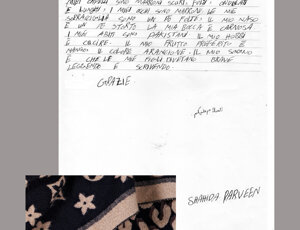 MIEI CAPELLI SONO MARRONI SCURI,
E LUNGHI. I MIEI OCHI SONO MARRONE LE MIE
SOPRACCIGLIA SONO UN PO FOLTE. IL MIO NASO
E UN PO STORTO LA MIA BOCCA E CARNOSA
I MIEI ABITI SONO PAKISTANI IL MIO HOBBI
E CUCIRE. IL MIO FRUTTO PREFERITO E
MANGO. IL COLORE ARANCIONE. IL MIO SOGNO
E CHE LE MIE FIGLI DIVETANO BRAVE
LEGGENDO E SCRIVENDO.
GRAZIE
السلام علیکم
SHAHIDA PARVEEN